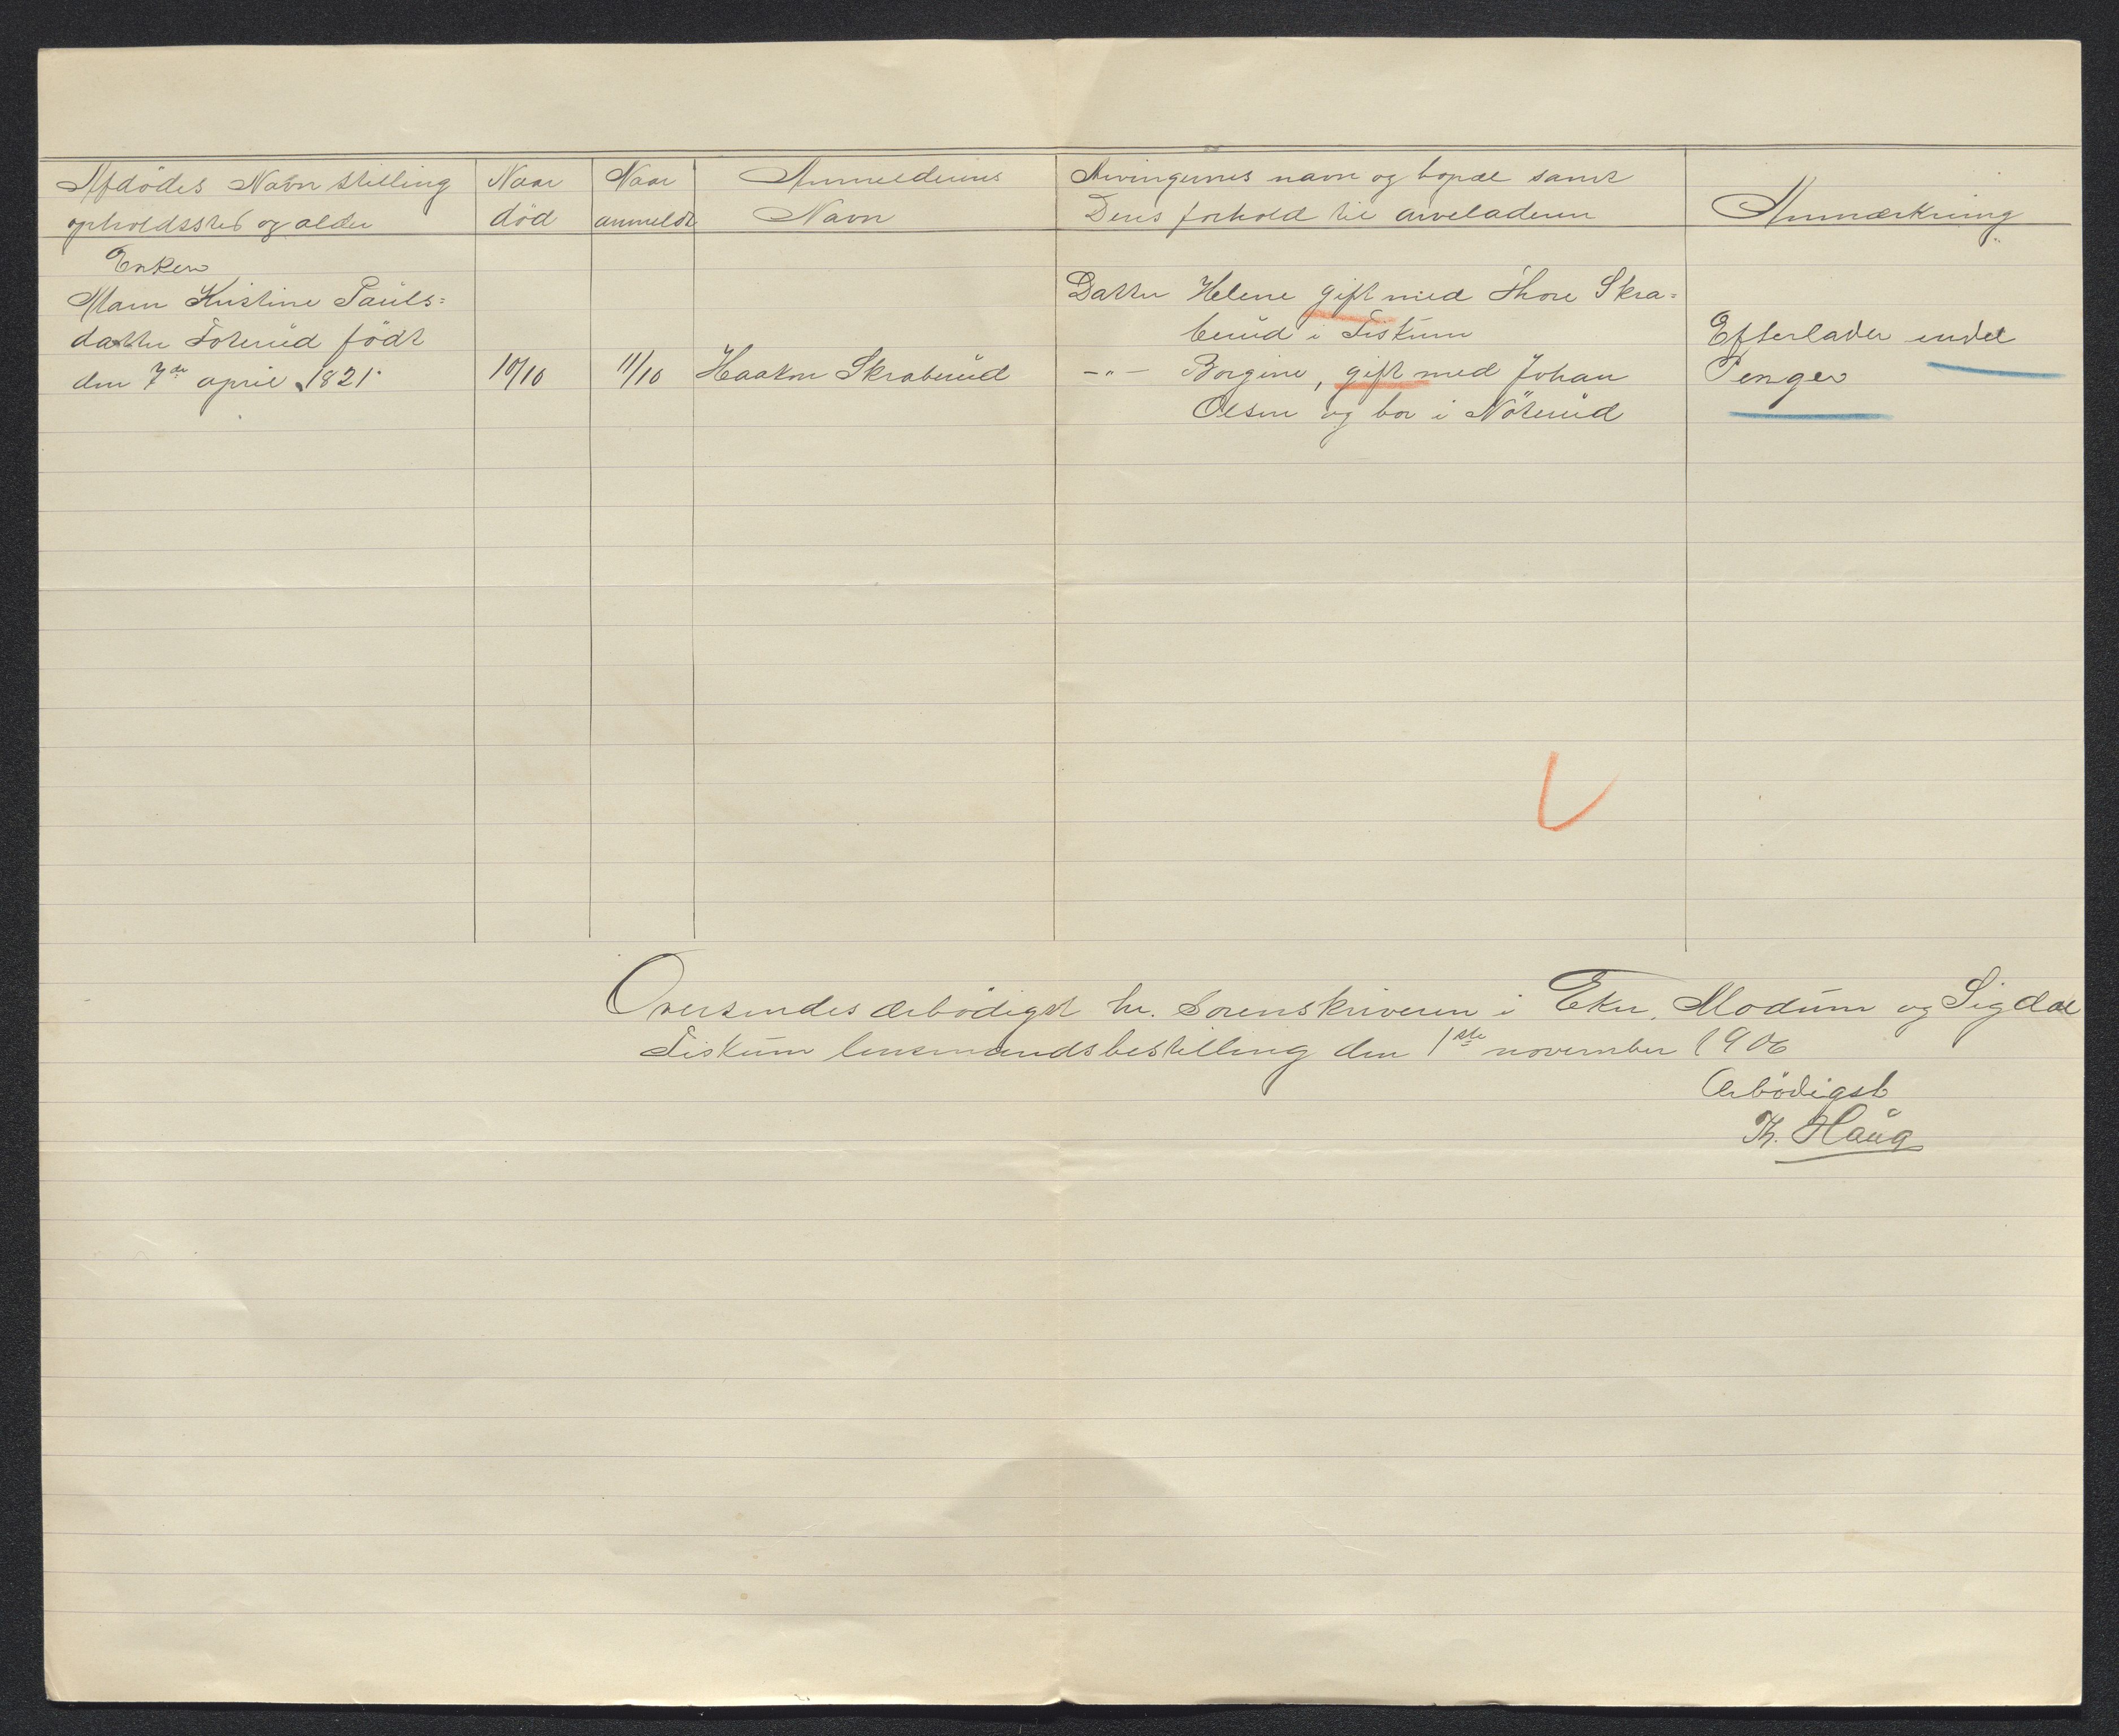 Afdödes Navn stilling
opholdssted og alder
Naar
död
Naar
anmeldt
Anmelderens
Navn
Arvingernes navn og bopæl samt
Deres forhold til arveladeren
Anmærkning
Enken
Maren Kristine Pauls=
datter Foterud födt
den 7de april 1821
10/10
11/10
Haakon Skraberud
Datter Helene gift med Thore Skra=
berud i Fiskum
-"- Borgine, gift med Johan
Olsen og bor i Nöterud
Efterlader endel
Penger
Oversendes ærbödigst hr. Sorenskriveren i Eker, Modum og Sigdal
Fiskum lensmandsbestilling den 1ste november 1906
Ærbödigst
Th. Haug